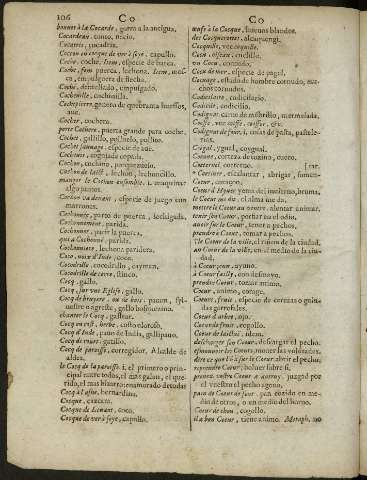 106 Co
bonnet à la Cocarde, gorra a la antigua.
Cocardeau, tonto, necio.
Cocatrix, cocadriz.
Cocon ou coque de ver à soye, capullo.
Coche, coche, Item, especie de barca.
Coche, fem. puerca, lechona. Item, muesca
en, empulguera de flecha.
Coché, dentellado, empulgado.
Cochenille, cochinilla.
Cochepierre, genero de quebranta huessos,
aue.
Cocher, cochero.
porte Cochere, puerta grande para coche.
Cochet, gallillo, polluelo, pollito.
Cochet sauuage, especie de aue.
Cocheuis, cogujada copada.
Cochon, cochino, porquezuelo.
Cochon de laict, lechon, lechoncillo.
manger le Cochon ensemble. i. maquinar
algo juntos.
Cochon va deuant, especie de juego con
marrones.
Cochonnée, parto de puerca, lechigada.
Cochonnement, parida.
Cochonner, parir la puerca.
qui a Cochonné, parida.
Cochonniere, lechona paridera.
Coco, noix d'Inde, coco.
Cocodrille, cocodrillo, cayman.
Cocodrille de terre, stinco.
Cocq, gallo.
Cocq, sur vne Eglise, gallo.
Cocq de bruyere, ou de bois, pauon, syluestre
o agreste, gallo bosquezino.
chanter le Cocq, gallear.
Cocq ou cost, herbe, costo oloroso.
Cocq d'Inde, pauo de Indias, gallipauo.
Cocq de riuiere, gatillo.
Cocq de paroisse, corregidor, Alcalde de
aldea.
le Cocq de la paroisse. i. el primero o principal
entre todos, el mas galan, el querido,
el mas bizarro: enamorado de todas
Cocq à l'asne, bernardina.
Cocque, cascara.
Cocque de Leuant, coco.
Cocque de ver à soye, capullo.
Co
œufs à la Cocque, hueuos blandos.
des Cocquerettes, alcaquengi.
Cocquille, vee coquille.
Cocu, oiseau, cuclillo.
vn Cocu, cornudo.
Cocu de mer, especie de pagel.
Cocuage, estado de hombre cornudo, muchos
cornudos.
Codicillaire, codicilario.
Codicile, codicilio.
Codignat, carne de membrillo, mermelada.
Coëffe, voi coiffe, coiffer, &c.
Codignac de four, i. cosas de pasta, pasteleria.
Coëgal, ygual, coygual.
Coenne, corteza de tozino, cuero.
Coeternel, coeterno.
* Coertiner, encortinar, abrigar, fomentar.
Coeur, coraçon.
Coeur d'Hyuer yema del inuierno, bruma.
le Coeur me dit, el alma me da.
mettre le Coeur au ventre, alentar, animar.
tenir son Coeur, porfiar en el odio.
auoir sur le Coeur, tener a pechos.
prendre à Coeur, tomar a pechos.
au Coeur de la ville, en medio de la ciudad.
à Coeur jeun, ayuno.
à Coeur failly, con desmayo.
prendre Coeur, tomar animo.
Coeur, animo, corage.
Coeurs, fruit, especie de cerezas o guindas
garrofales.
Coeur d'arbre, ojo.
Coeur de fruit, cogollo.
Coeur de laictuë, idem.
descharger son Coeur, descargar el pecho.
esmouuoir les Coeurs, mouer las voluntades.
dire ce que l'õ a sur le Coeur, abrir el pecho.
reprendre Coeur, boluer sobre si.
prenez vostre Coeur à autruy, juzgad por
el vuestro el pecho ageno.
pain de Coeur de four, pan cozido en medio
de otros, o en medio del horno.
Coeur de chou, cogollo.
il a bon Coeur, tiene animo. Metaph. no